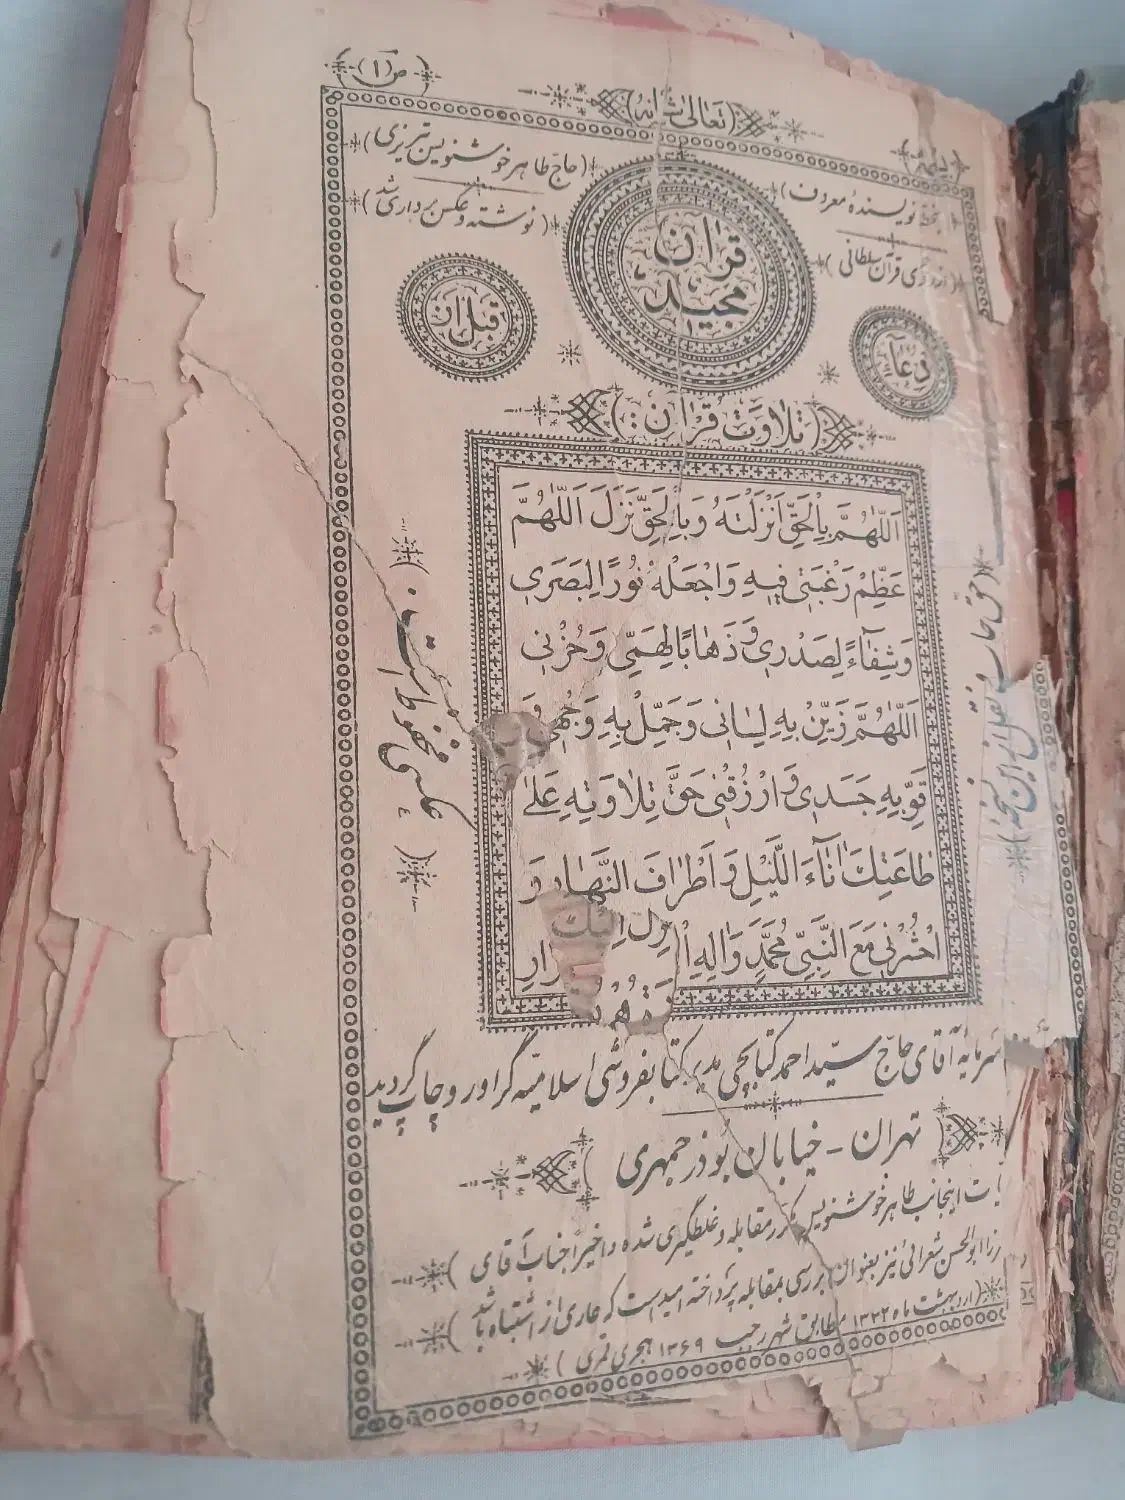 ص (۱)
(تعالی شانه)
بخط نویسندهٔ معروف
(حاج طاهر خوشنویس تبریزی)
از روی قرآن سلطانی
(نوشته و عکس برداری شد)
قرآن
مجید
دعآ
قبل از
(تلاوت قرآن:)
اَللّٰهُمَّ بِالْحَقِّ اَنْزَلْتَهُ وَبِالْحَقِّ نَزَلَ اَللّٰهُمَّ
عَظِّمْ رَغْبَتی فیهِ وَاجْعَلْهُ نُورًا لِبَصَری
وَشِفٰٓاءً لِصَدْری وَذَهٰابًا لِهَمّی وَحُزْنی
اَللّٰهُمَّ زَیِّنْ بِهِ لِسٰانی وَجَمِّلْ بِهِ وَجْهی وَ
قَوِّ بِهِ جَسَدی وَارْزُقْنی حَقَّ تِلٰاوَتِهِ عَلیٰ
طٰاعَتِكَ اٰنٰآءَ اللَّیْلِ وَاَطْرٰافَ النَّهٰارِ وَ
احْشُرْنی مَعَ النَّبِیِّ مُحَمَّدٍ وَاٰلِهِ
(حق چاپ و نقل از این نسخه)
عکسی محفوظ است.
سرمایه آقای حاج سید احمد کتابچی مدیر کتابفروشی اسلامیه گراور و چاپ گردید
تهران - خیابان بوذرجمهری
اینجانب طاهر خوشنویس مکرر مقابله و غلطگیری شده و اخیراً جناب آقای
ابوالحسن شعرانی نیز بعنوان بررسی بمقابله پرداخته امید است که عاری از اشتباه باشد
(اردیبهشت ماه ۱۳۲۲ مطابق شهر رجب ۱۳۶۹ هجری قمری)